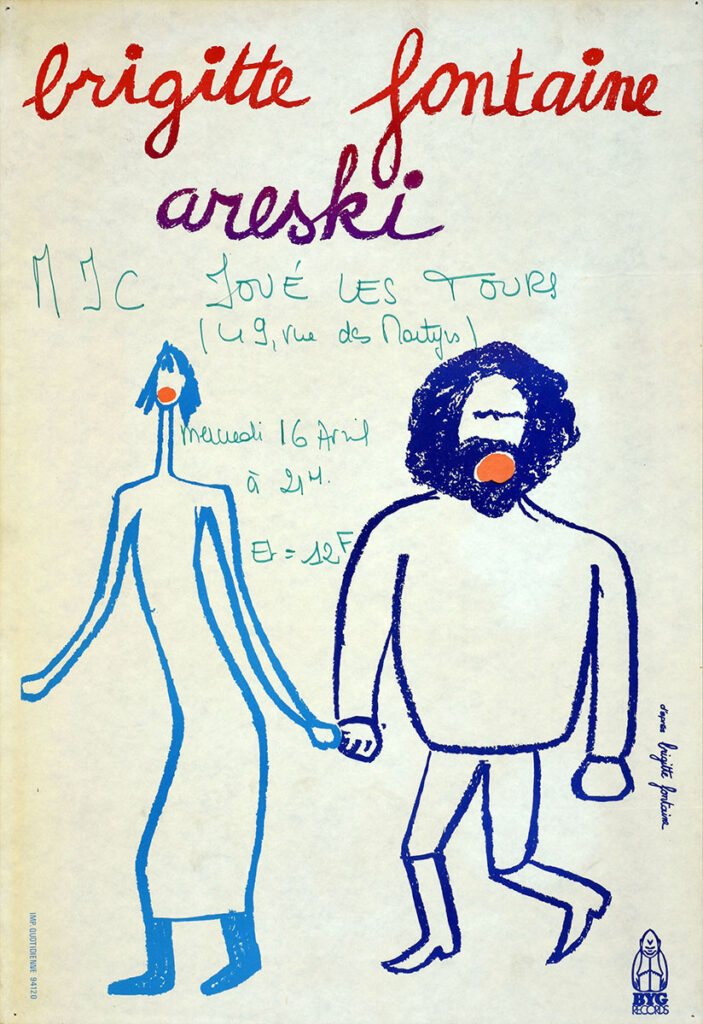 brigitte fontaine
areski
MJC JOUÉ LES TOURS
(49, rue des Martyrs)
mercredi 16 Avril
à 21H.
Et = 12F
d'après brigitte fontaine
IMP. QUOTIDIENNE 94120
BYG
RECORDS